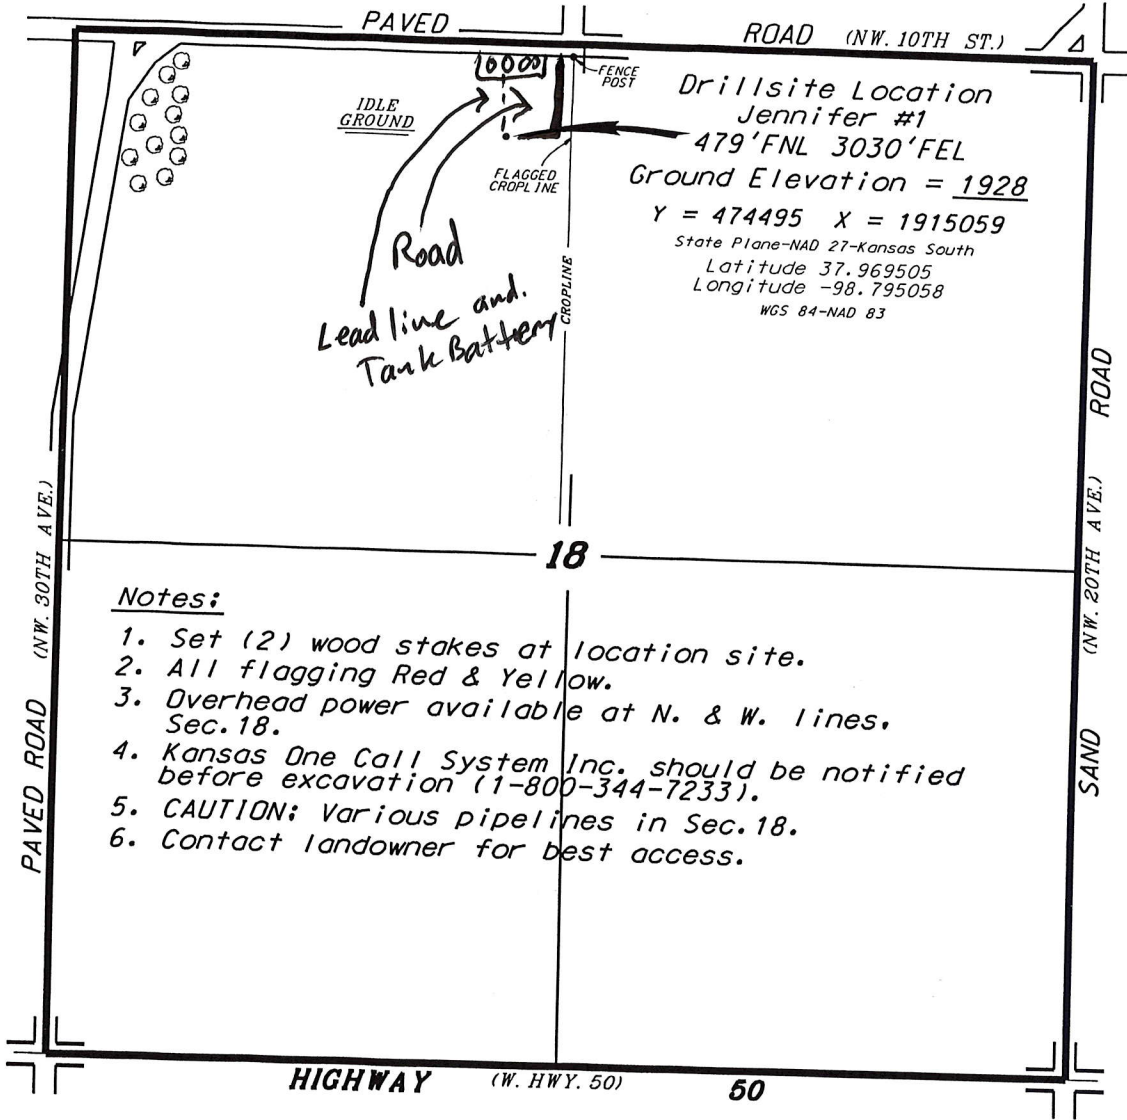 PAVED
ROAD (NW. 10TH ST.)
FENCE
POST
IDLE
GROUND
FLAGGED
CROPLINE
Drillsite Location
Jennifer #1
479'FNL 3030'FEL
Ground Elevation = 1928
Y = 474495 X = 1915059
State Plane-NAD 27-Kansas South
Latitude 37.969505
Longitude -98.795058
WGS 84-NAD 83
Road
Lead line and.
Tank Battery
CROPLINE
18
PAVED ROAD (NW. 30TH AVE.)
SAND (NW. 20TH AVE.) ROAD
Notes:
1. Set (2) wood stakes at location site.
2. All flagging Red & Yellow.
3. Overhead power available at N. & W. lines,
Sec.18.
4. Kansas One Call System Inc. should be notified
before excavation (1-800-344-7233).
5. CAUTION: Various pipelines in Sec.18.
6. Contact landowner for best access.
HIGHWAY (W. HWY. 50) 50